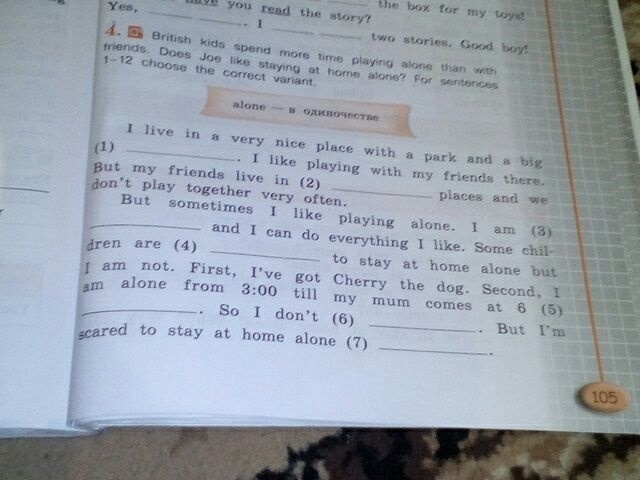 have you read the story?
the box for my toys!
Yes, ____________. I ______ ______ two stories. Good boy!
4. British kids spend more time playing alone than with
friends. Does Joe like staying at home alone? For sentences
1–12 choose the correct variant.
alone — в одиночестве
I live in a very nice place with a park and a big
(1) ____________. I like playing with my friends there.
But my friends live in (2) ____________ places and we
don't play together very often.
But sometimes I like playing alone. I am (3)
____________ and I can do everything I like. Some chil-
dren are (4) ____________ to stay at home alone but
I am not. First, I've got Cherry the dog. Second, I
am alone from 3:00 till my mum comes at 6 (5)
____________. So I don't (6) ____________. But I'm
scared to stay at home alone (7) ____________.
105